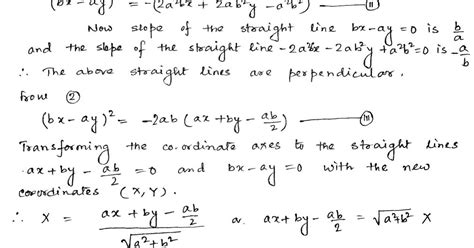 (bx-ay)² = -(2a²bx + 2ab²y - a²b²) — (II)
Now slope of the straight line bx-ay=0 is b/a
and the slope of the straight line -2a²bx-2ab²y+a²b²=0 is -a/b
∴ The above straight lines are perpendicular.
from (2)
(bx-ay)² = -2ab (ax+by-ab/2) — (III)
Transforming the co-ordinate axes to the straight lines
ax+by-ab/2=0 and bx-ay=0 with the new
coordinates (X,Y).
∴ X = (ax+by-ab/2)/√(a²+b²) or. ax+by-ab/2 = √(a²+b²) X